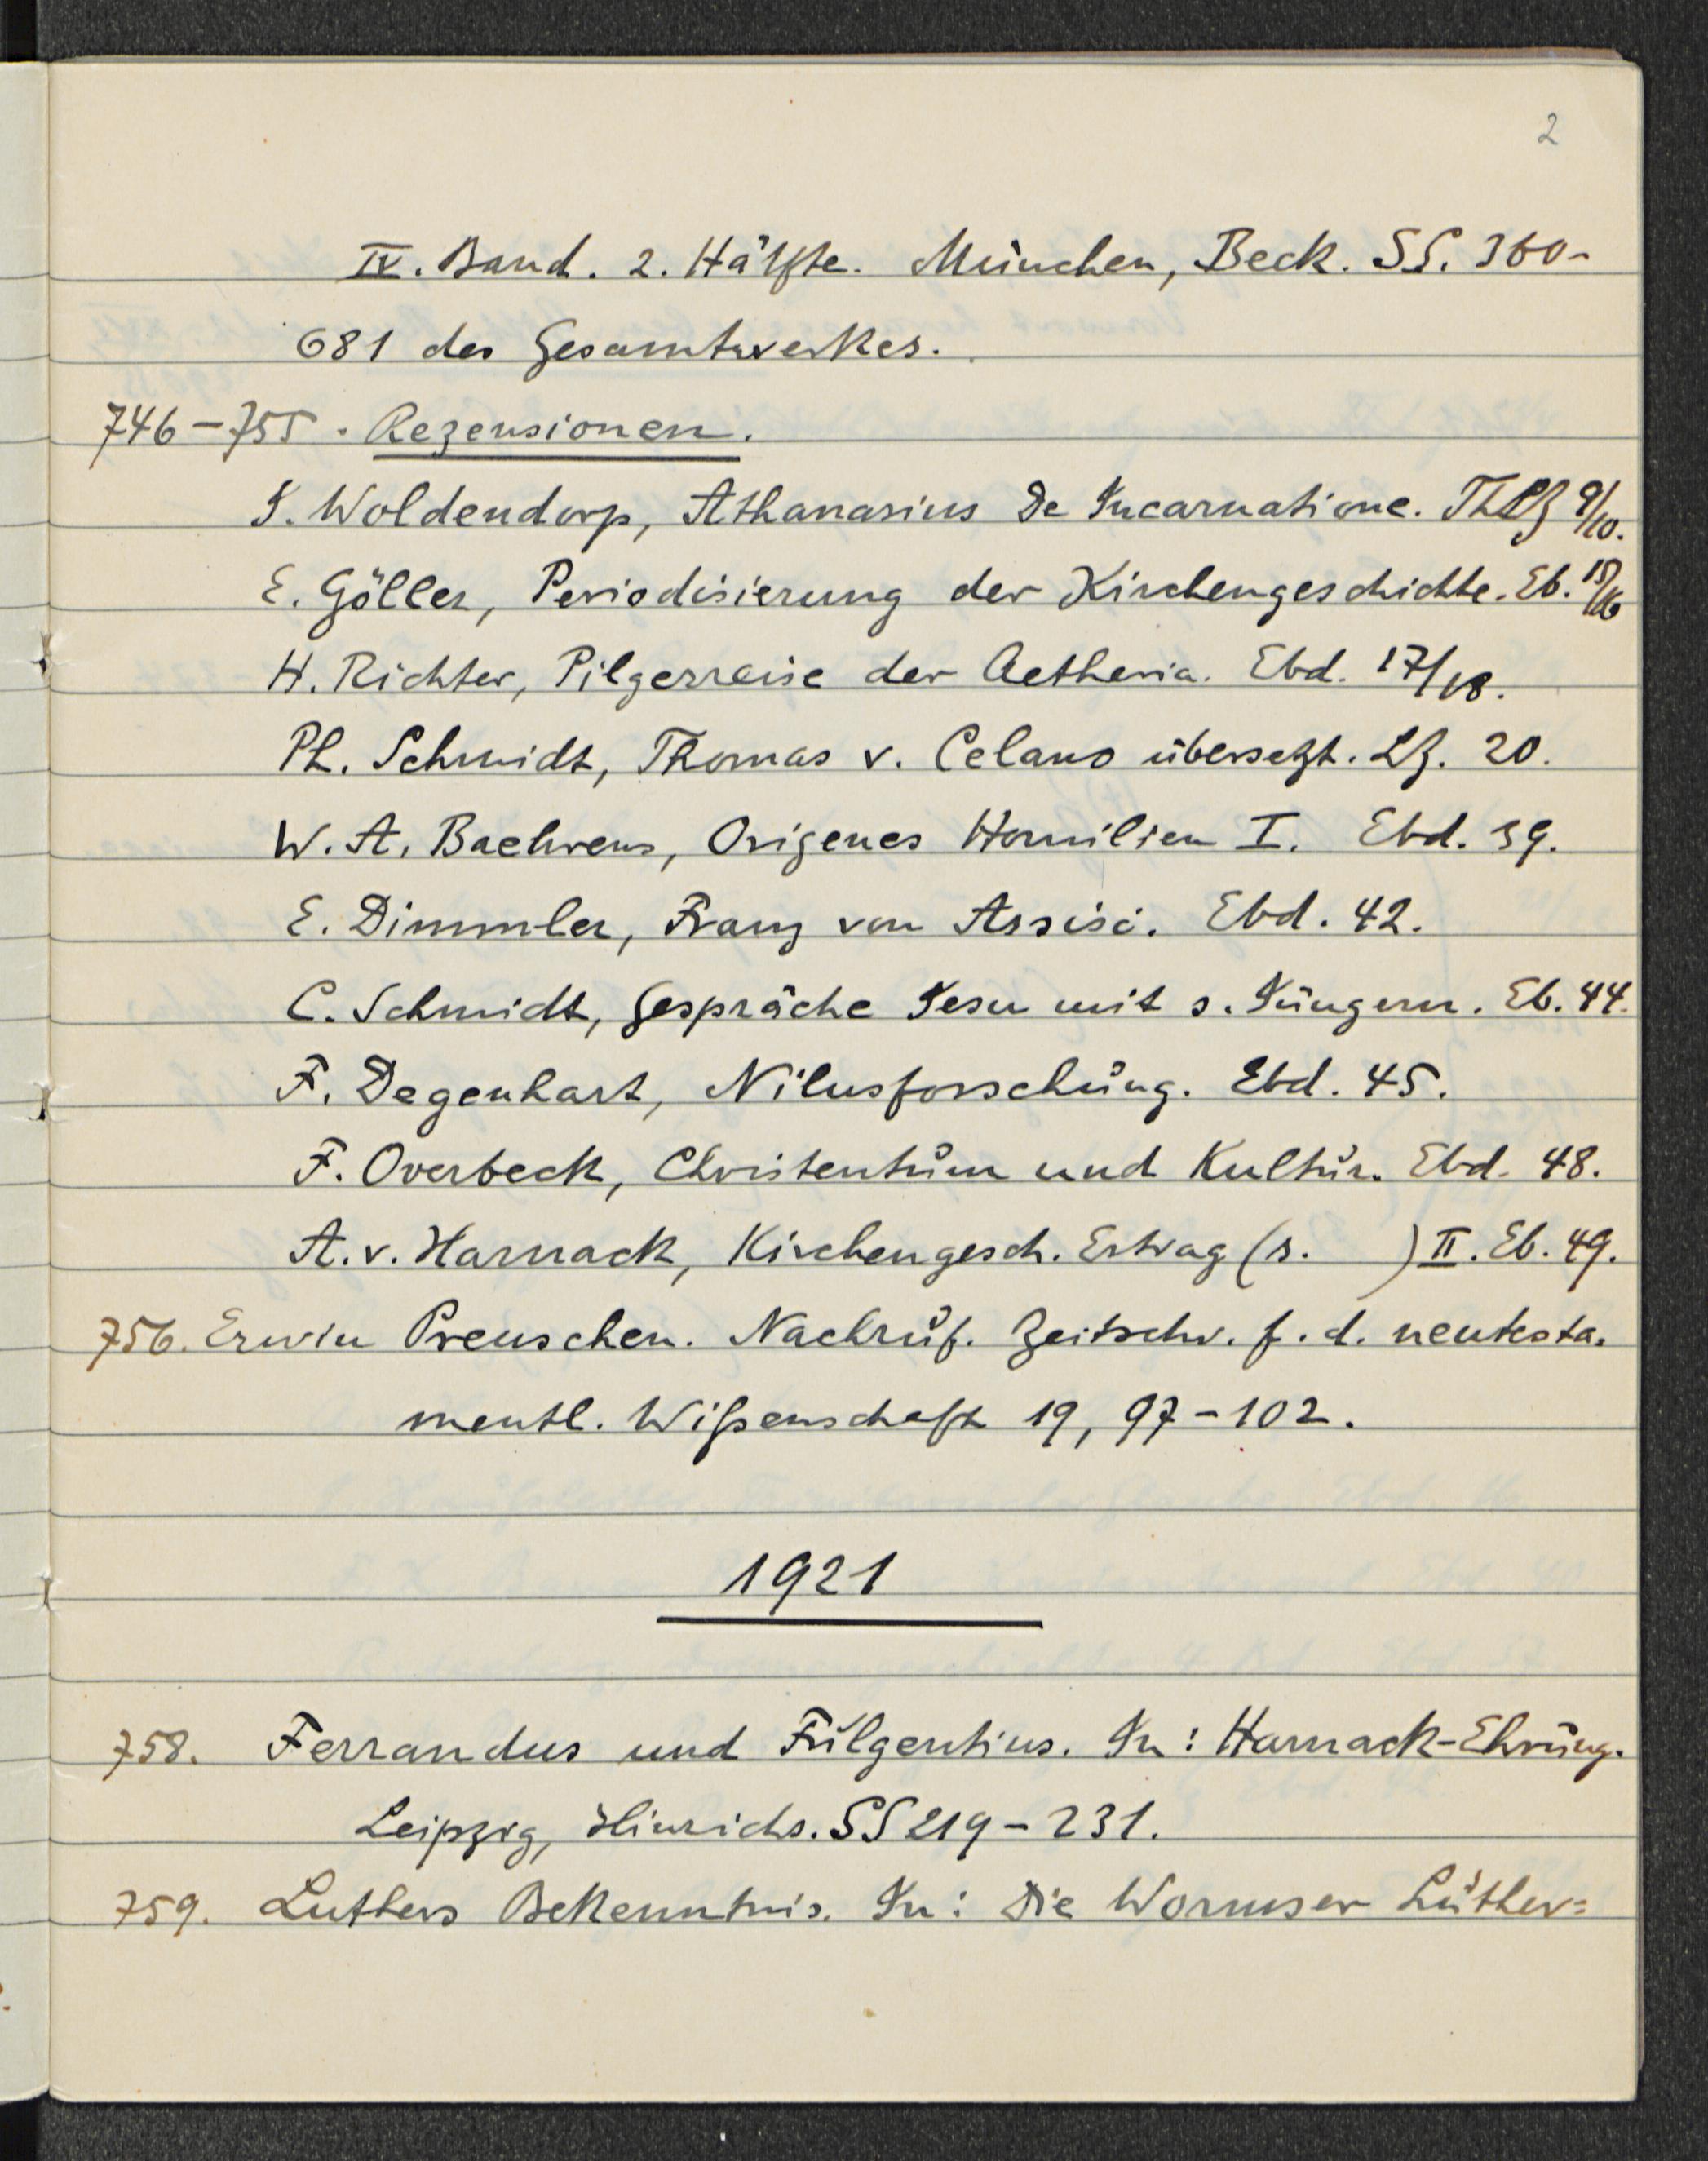 2
IV. Band. 2. Hälfte. München, Beck. SS. 360-
681 des Gesamtwerkes.
746-755. Rezensionen.
J. Woldendorp, Athanasius De Incarnatione. ThLZ 9/10.
E. Göller, Periodisierung der Kirchengeschichte. Eb. 15/16
H. Richter, Pilgerreise der Aetheria. Ebd. 17/18.
Ph. Schmidt, Thomas v. Celano übersetzt. LZ. 20.
W. A. Baehrens, Origenes Homilien I. Ebd. 39.
E. Dimmler, Franz von Assisi. Ebd. 42.
C. Schmidt, Gespräche Jesu mit s. Jüngern. Eb. 44.
F. Degenhart, Nilusforschung. Ebd. 45.
F. Overbeck, Christentum und Kultur. Ebd. 48.
A. v. Harnack, Kirchengesch. Ertrag (s. ) II. Eb. 49.
756. Erwin Preuschen. Nachruf. Zeitschr. f. d. neutesta-
mentl. Wißenschaft 19, 97-102.
1921
758. Ferrandus und Fulgentius. In: Harnack-Ehrung.
Leipzig, Hinrichs. SS 219-231.
759. Luthers Bekenntnis. In: Die Wormser Luther=